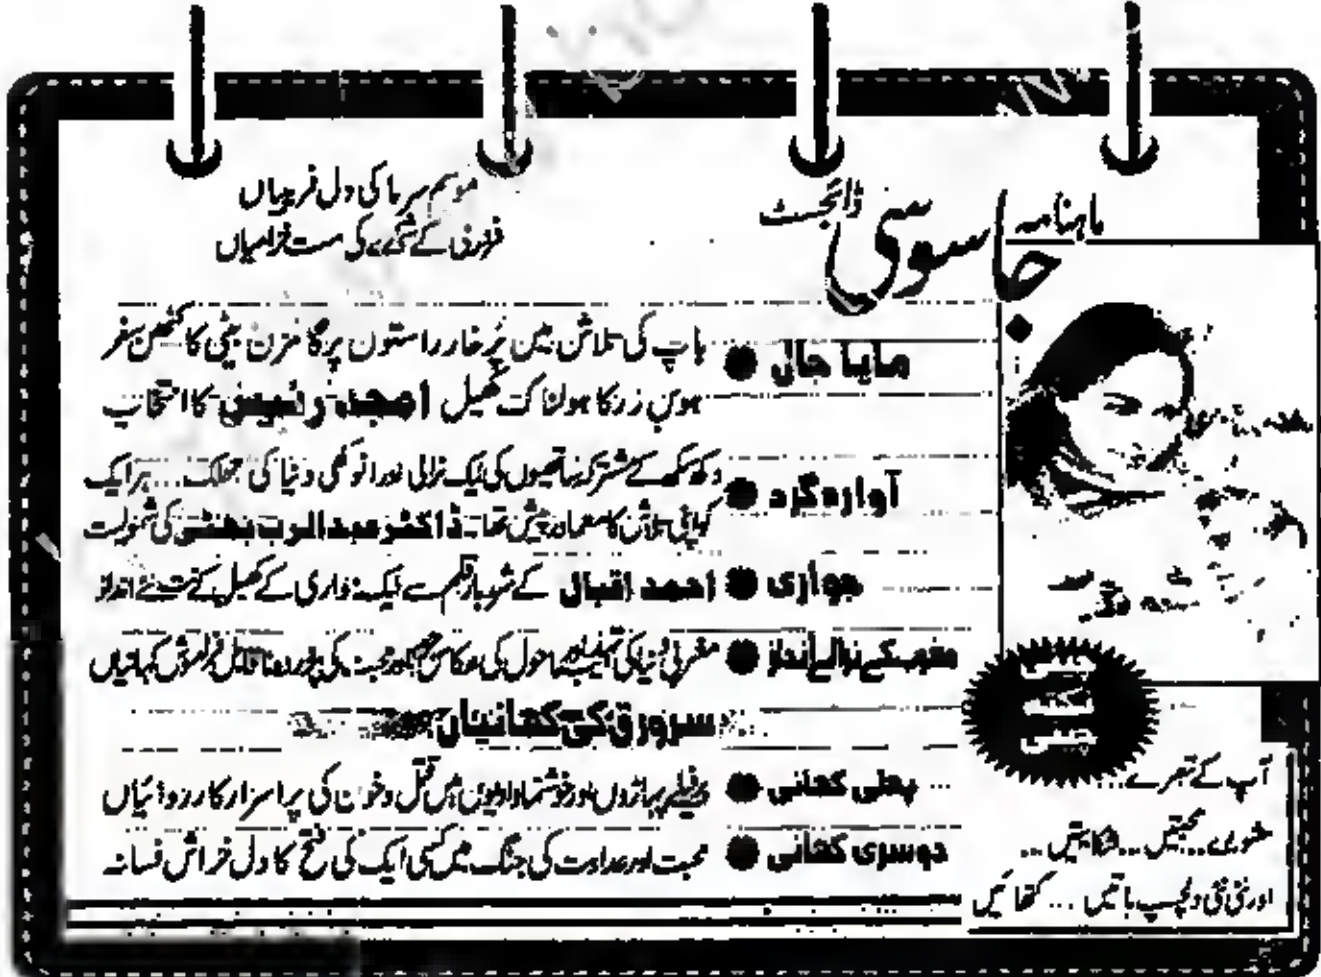 ماہنامہ جاسوسی ڈائجسٹ
موسم سرما کی دل فریبیاں
فروری کے شمارے کی مست خرامیاں
مایا جال ● باپ کی تلاش میں پُرخار راستوں پر گامزن بیٹی کا کٹھن سفر
ہوسِ زر کا ہولناک کھیل امجد رئیس کا انتخاب
آوارہ گرد ● دکھ سکھ کے مشترکہ ساتھیوں کی ایک نرالی اور انوکھی دنیا کی جھلک... ہر ایک
کو اپنی تلاش کا معما درپیش تھا۔ ڈاکٹر عبدالرب بھٹی کی شمولیت
جواری ● احمد اقبال کے شہباز قلم سے ایک نئے انداز
مغرب کے نرالے انداز ● مغربی دنیا کی تہذیب اور ماحول کی عکاسی محبت کی کہانیاں
سرورق کی کہانیاں
پہلی کہانی ● برفیلے پہاڑوں اور خوشنما وادیوں میں قتل و خون کی پراسرار کارروائیاں
دوسری کہانی ● محبت اور عداوت کی جنگ میں کسی ایک کی فتح کا دل خراش فسانہ
آپ کے تبصرے...
مشورے... محبتیں... شکایتیں...
اور نئی نئی دلچسپ باتیں... کتھائیں